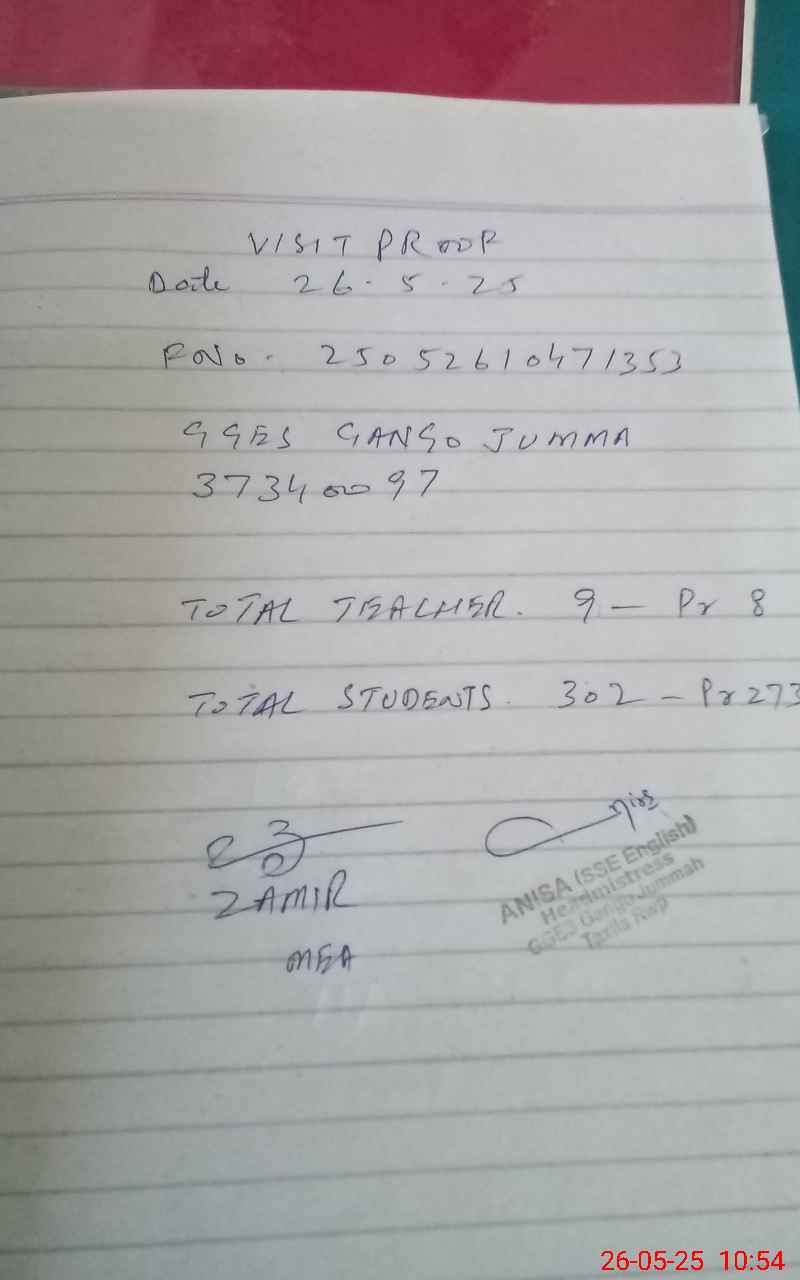 VISIT PROOF
Date 26.5.25
F No. 25052610471353
GGES GANGO JUMMA
37340097
TOTAL TEACHER. 9 — Pr 8
TOTAL STUDENTS. 302 — Pr 273
ZAMIR
MEA
ANISA (SSE English)
Headmistress
GGES Gango Jummah
Taxila Rwp
26-05-25 10:54